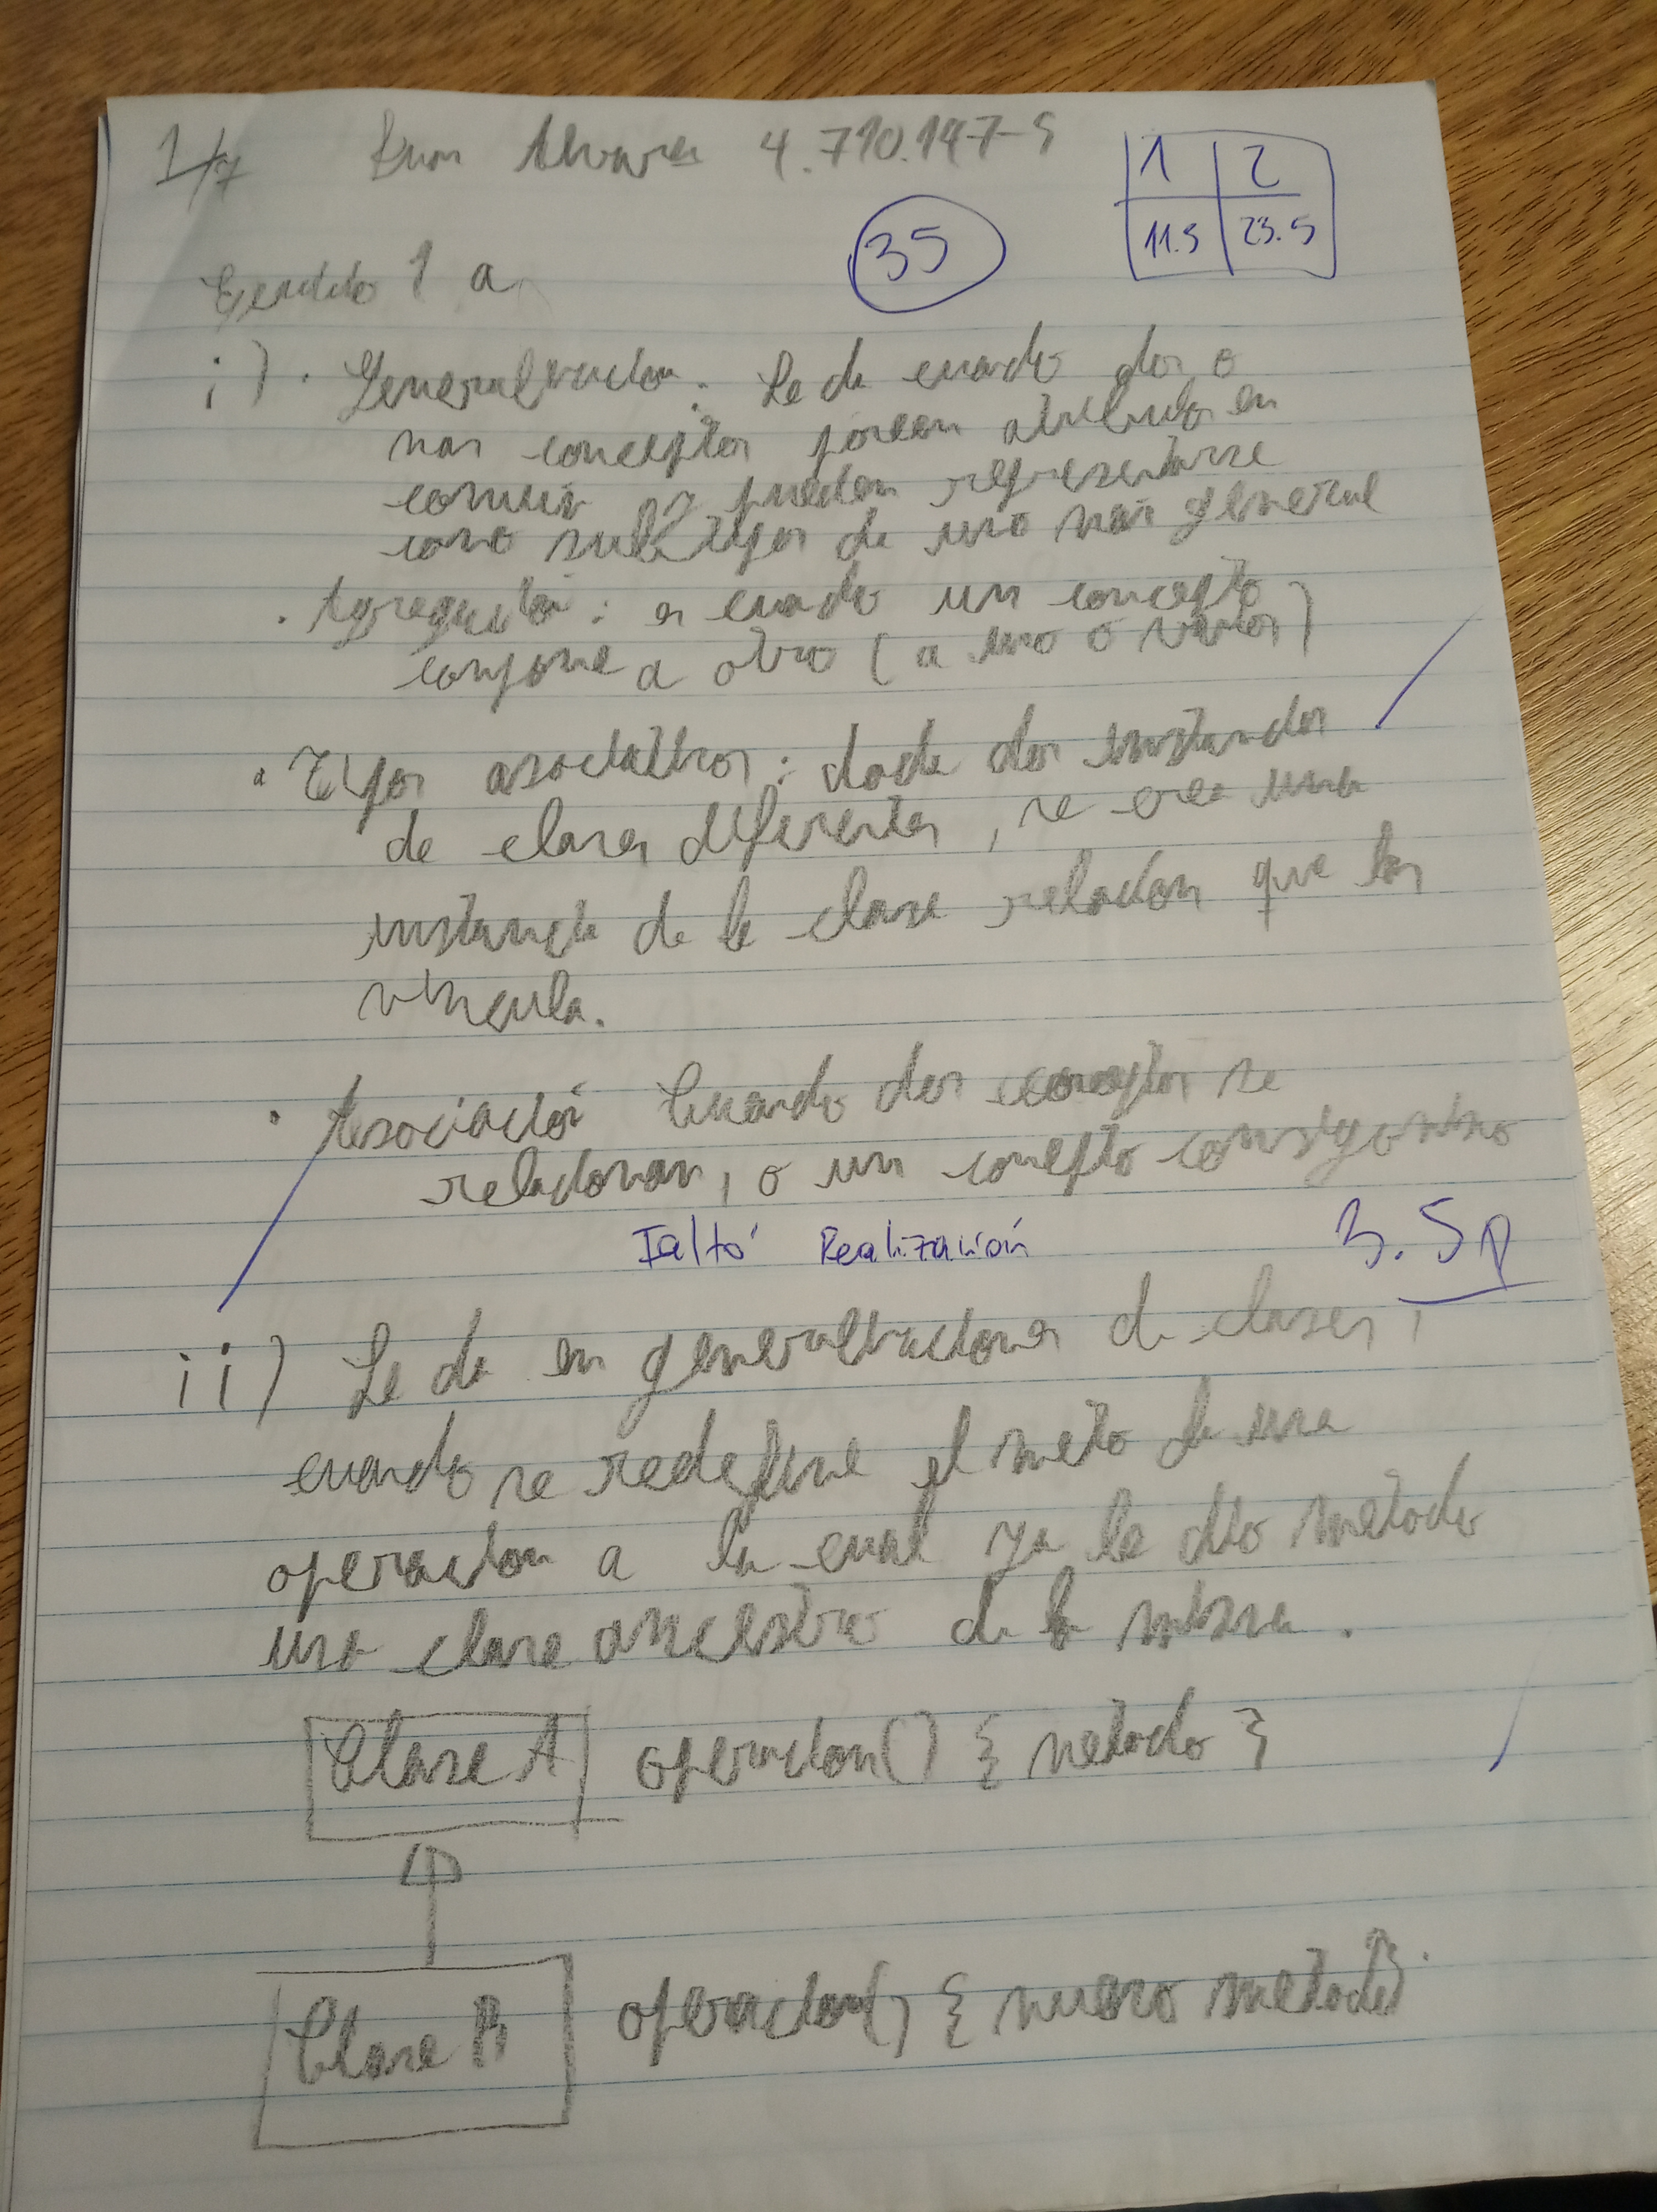 1/7 Alvarez 4.710.147-5
1 2
35 11.5 23.5
Ejercicio 1 a
i) · Generalización: Se da cuando dos o
mas conceptos poseen atributos en
común y pueden representarse
como subtipos de uno más general
· Agregación: es cuando un concepto
compone a otro (a uno o varios)
· Tipos asociativos: dada dos instancias
de clases diferentes, se crea una
instancia de la clase relacion que las
vincula.
· Asociación Cuando dos conceptos se
relacionan, o un concepto consigo mismo
Faltó Realización 3.5p
ii) Se da en generalizaciones de clases,
cuando se redefine el meto de una
operacion a la cual ya le dio metodo
una clase ancestro de la misma.
Clase A operacion() { metodo }
Clase B operacion() { nuevo metodo }.